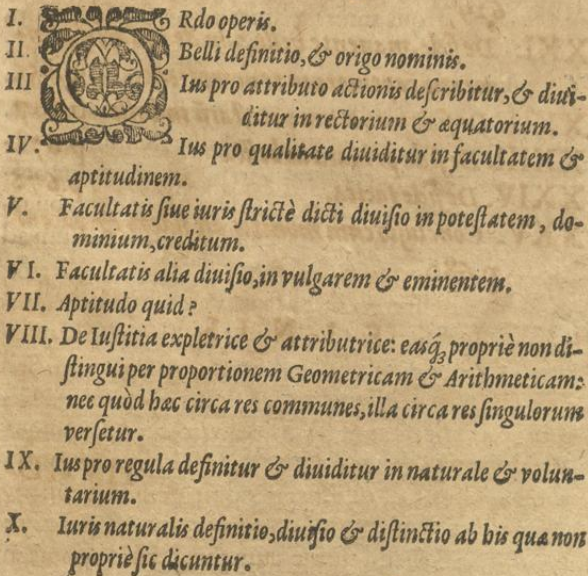 I. ORdo operis.
II. Belli definitio, & origo nominis.
III Ius pro attributo actionis describitur, & diui-
ditur in rectorium & æquatorium.
IV. Ius pro qualitate diuiditur in facultatem &
aptitudinem.
V. Facultatis siue iuris strictè dicti diuisio in potestatem, do-
minium, creditum.
VI. Facultatis alia diuisio, in vulgarem & eminentem.
VII. Aptitudo quid?
VIII. De Iustitia expletrice & attributrice: easq́; propriè non di-
stingui per proportionem Geometricam & Arithmeticam:
nec quòd hæc circa res communes, illa circa res singulorum
versetur.
IX. Ius pro regula definitur & diuiditur in naturale & volun-
tarium.
X. Iuris naturalis definitio, diuisio & distinctio ab his quæ non
propriè sic dicuntur.